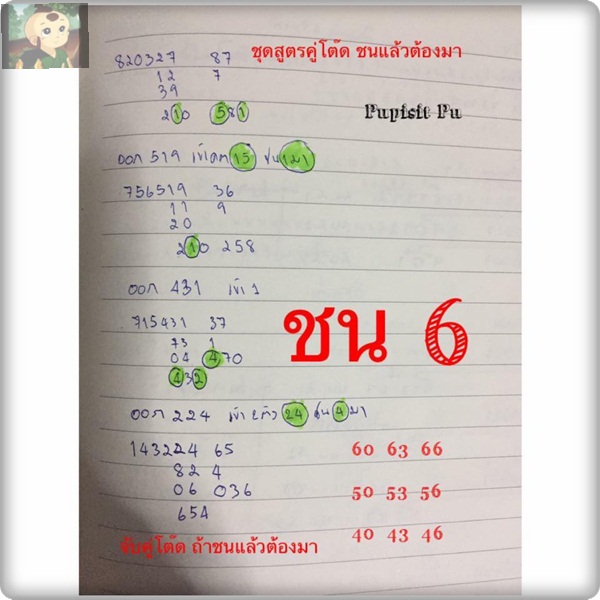 ชุดสูตรคู่โต๊ด ชนแล้วต้องมา
Pupisit Pu
820327 87
12 7
39
210 581
ออก 519 เข้า 15 ชน 1 มา
756519 36
11 9
20
210 258
ออก 431 เข้า 1
715431 37
73 1
04 470
432
ออก 224 เข้าแล้ว 24 ชน 4 มา
143224 65
82 4
06 036
654
ชน 6
60 63 66
50 53 56
40 43 46
จับคู่โต๊ด ถ้าชนแล้วต้องมา